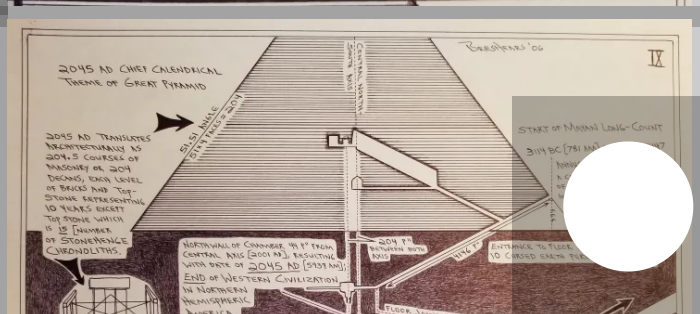 Breshears '06
IX
2045 AD CHIEF CALENDRICAL
THEME OF GREAT PYRAMID
CENTRAL NORTH
SOUTH AXIS
51.51 ANGLE
51 X 4 FACES = 204
2045 AD TRANSLATES
ARCHITECTURALLY AS
204.5 COURSES OF
MASONRY OR, 204
DECANS, EACH LEVEL
OF BRICKS AND TOP-
STONE REPRESENTING
10 YEARS EXCEPT
TOP STONE WHICH
IS 15 [NUMBER
OF STONEHENGE
CHRONOLITHS.
START OF MAYAN LONG-COUNT
3114 BC [781 AM]
NORTH WALL OF CHAMBER 44 P" FROM
CENTRAL AXIS [2001 AD], RESULTING
WITH DATE OF 2045 AD [5939 AM];
END OF WESTERN CIVILIZATION
IN NORTHERN
HEMISPHERIC
AMERICA
204 P"
BETWEEN BOTH
AXIS
4146 P"
ENTRANCE TO FLOOR
10 CURSED EARTH
FLOOR